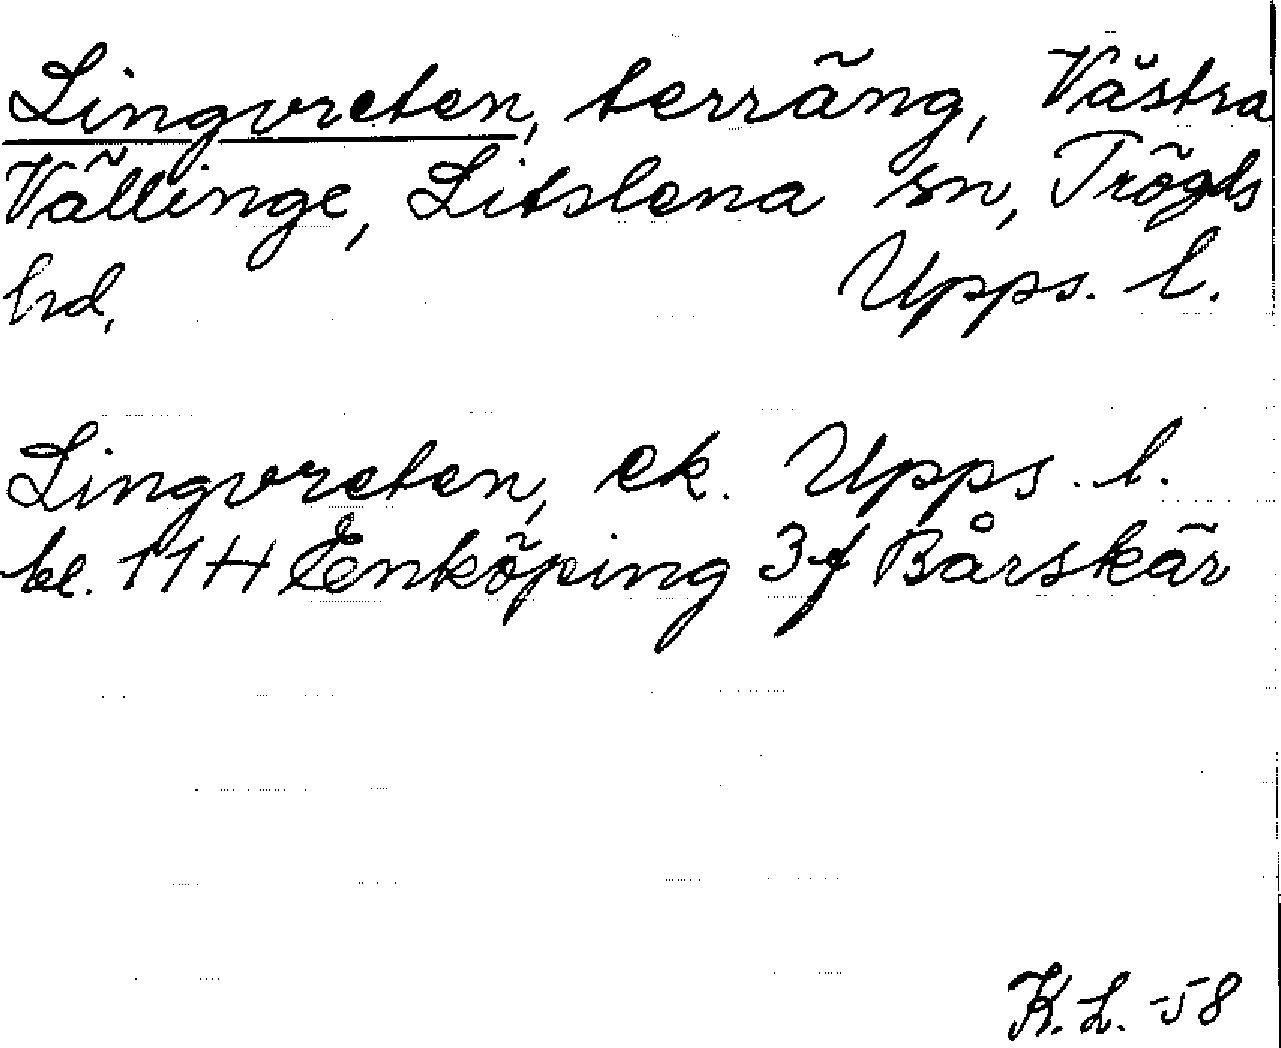 Lingvreten, terräng, Västra
Vällinge, Litslena sn, Trögds
hd, Upps. l.
Lingvreten, ek. Upps. l.
bl. 11 H Enköping 3 f Bårskär
K. L. -58